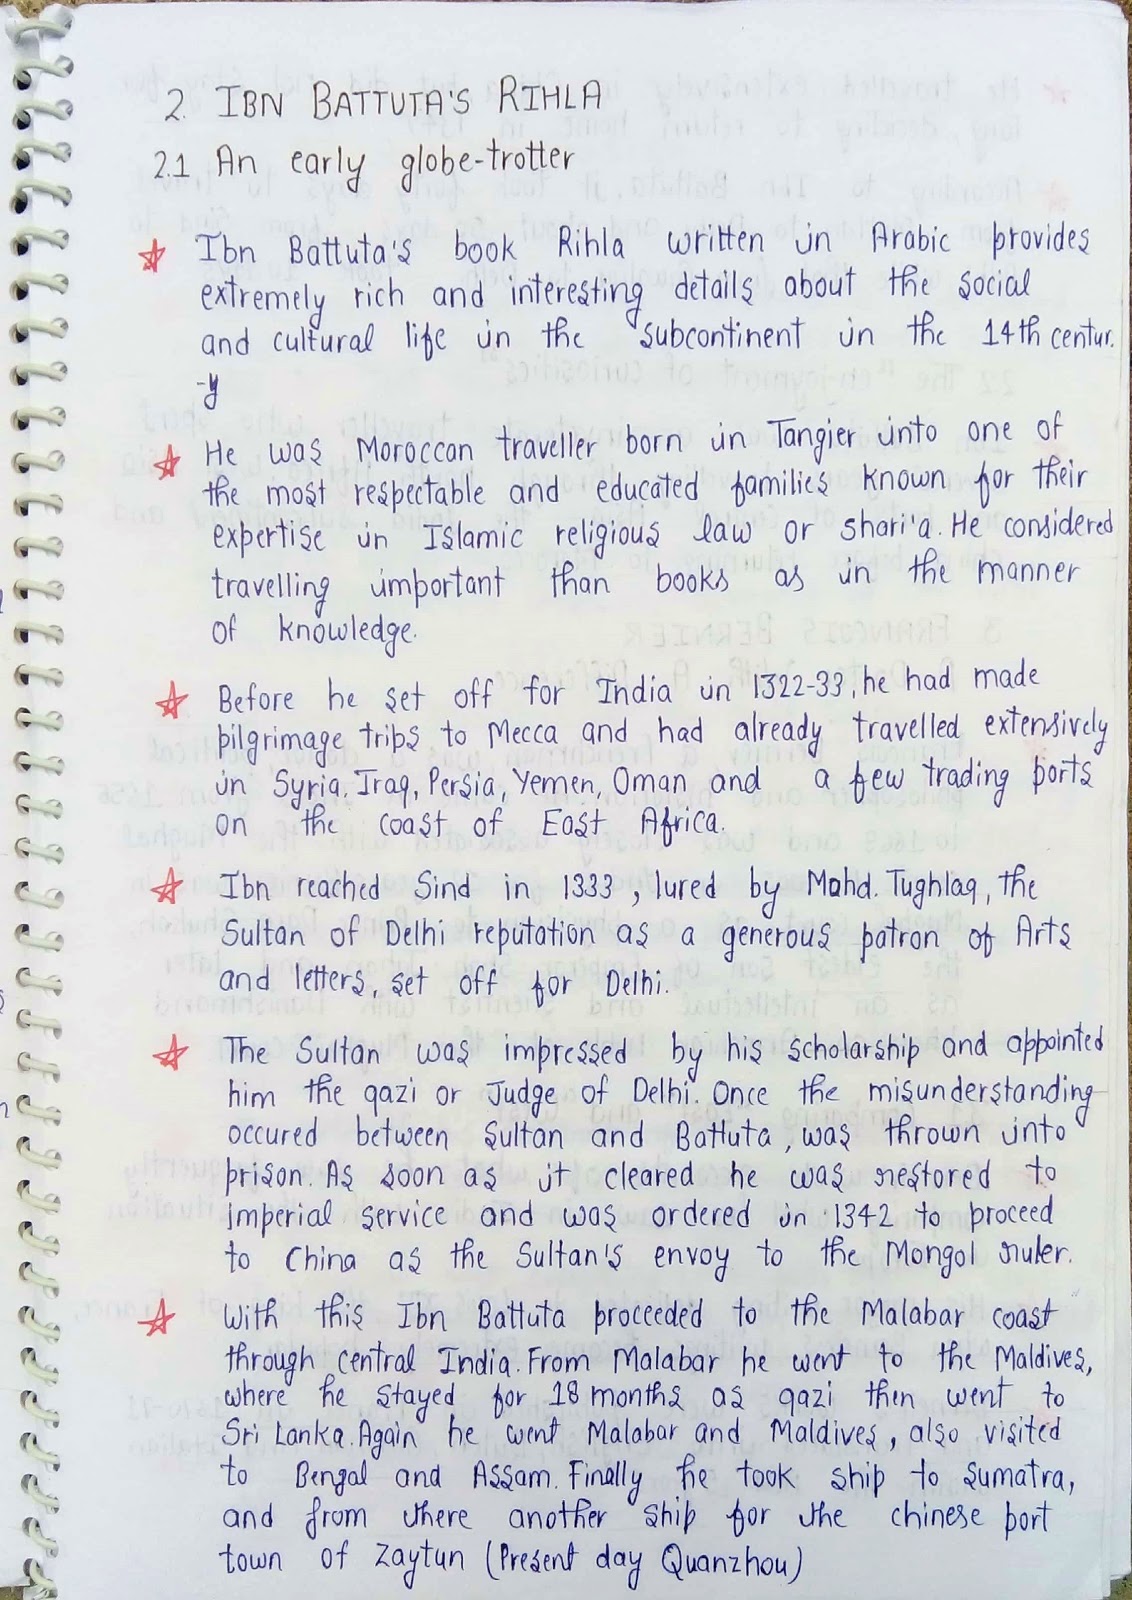 2. IBN BATTUTA'S RIHLA
2.1 An early globe-trotter
Ibn Battuta's book Rihla written in Arabic provides
extremely rich and interesting details about the social
and cultural life in the subcontinent in the 14th centur.
-y
He was Moroccan traveller born in Tangier into one of
the most respectable and educated families known for their
expertise in Islamic religious law or shari'a. He considered
travelling important than books as in the manner
of knowledge.
Before he set off for India in 1322-33, he had made
pilgrimage trips to Mecca and had already travelled extensively
in Syria, Iraq, Persia, Yemen, Oman and a few trading ports
on the coast of East Africa.
Ibn reached Sind in 1333, lured by Mohd. Tughlaq, the
Sultan of Delhi reputation as a generous patron of Arts
and letters, set off for Delhi.
The Sultan was impressed by his scholarship and appointed
him the qazi or Judge of Delhi. Once the misunderstanding
occured between Sultan and Battuta, was thrown into
prison. As soon as it cleared he was restored to
imperial service and was ordered in 1342 to proceed
to China as the Sultan's envoy to the Mongol ruler.
With this Ibn Battuta proceeded to the Malabar coast
through central India. From Malabar he went to the Maldives,
where he stayed for 18 months as qazi then went to
Sri Lanka. Again he went Malabar and Maldives, also visited
to Bengal and Assam. Finally he took ship to Sumatra,
and from there another ship for the chinese port
town of Zaytun (Present day Quanzhou)